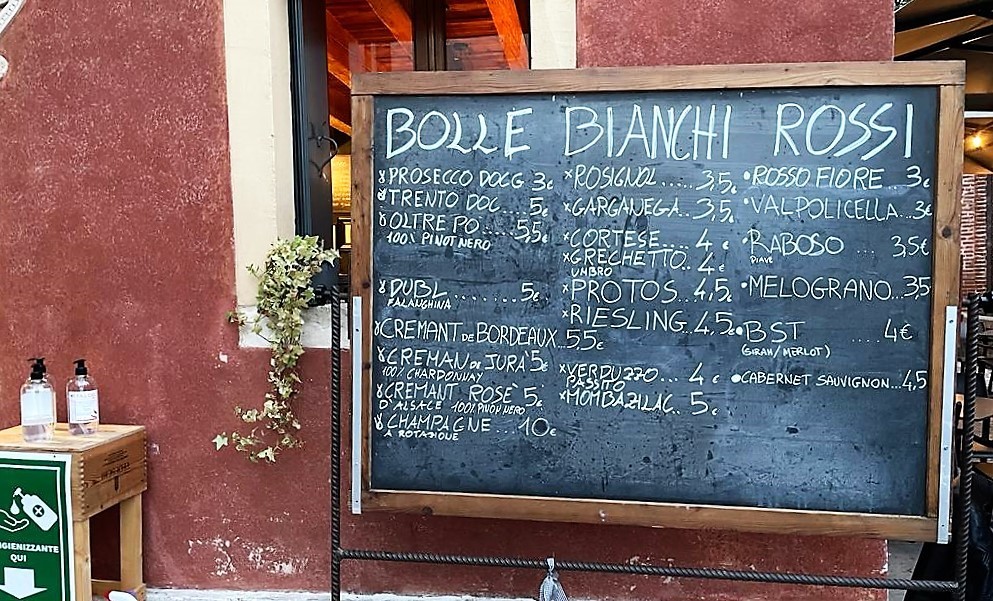 BOLLE
PROSECCO DOCG 3€
TRENTO DOC..... 5€
OLTRE PO..... 5,5€
100% PINOT NERO
DUBL......... 5€
FALANGHINA
CREMANT DE BORDEAUX...5,5€
CREMAN DE JURA' 5€
100% CHARDONNAY
CREMANT ROSÈ 5€
D'ALSACE 100% PINOT NERO
CHAMPAGNE... 10€
A ROTAZIONE
BIANCHI
ROSIGNOL..... 3,5€
GARGANEGA... 3,5€
CORTESE.... 4€
GRECHETTO.. 4€
UMBRO
PROTOS... 4,5€
RIESLING... 4,5€
VERDUZZO... 4€
PASSITO
MOMBAZILAC.. 5€
ROSSI
ROSSO FIORE.. 3€
VALPOLICELLA... 3€
RABOSO ..... 3,5€
PIAVE
MELOGRANO... 3,5
BST .... 4€
(SIRAH/MERLOT)
CABERNET SAUVIGNON... 4,5
IGIENIZZANTE
QUI